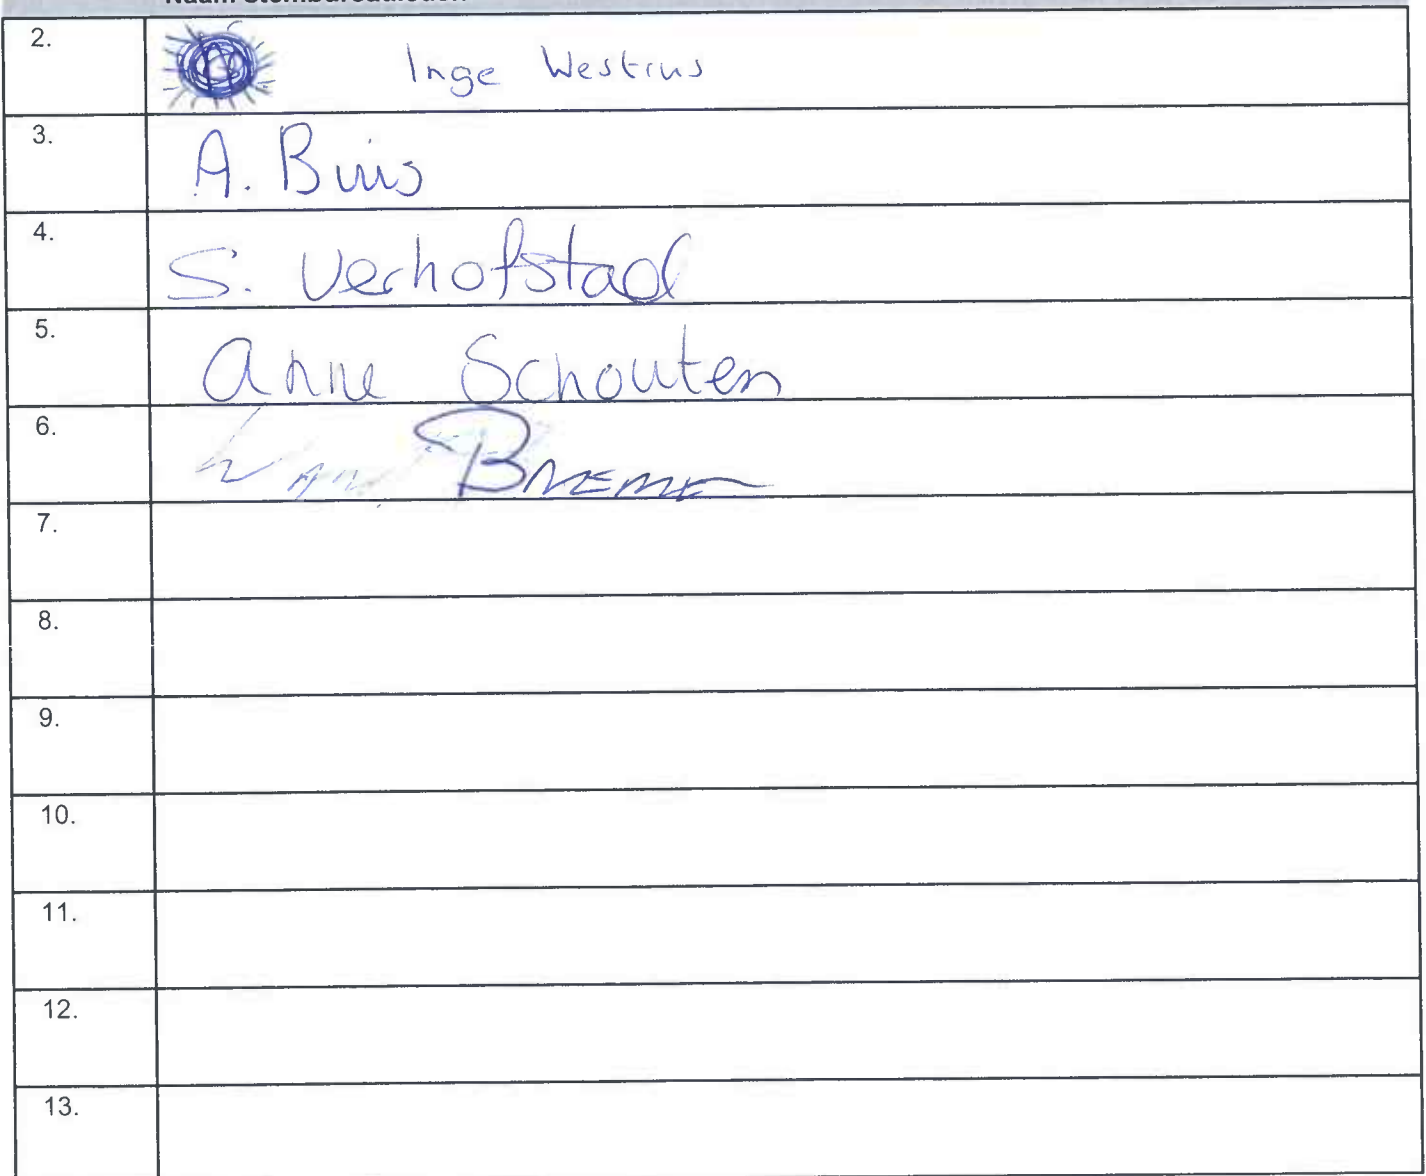 Naam stembureauleden
2. Inge Westrus
3. A. Buis
4. S. Verhofstad
5. Anne Schouten
6.
7.
8.
9.
10.
11.
12.
13.